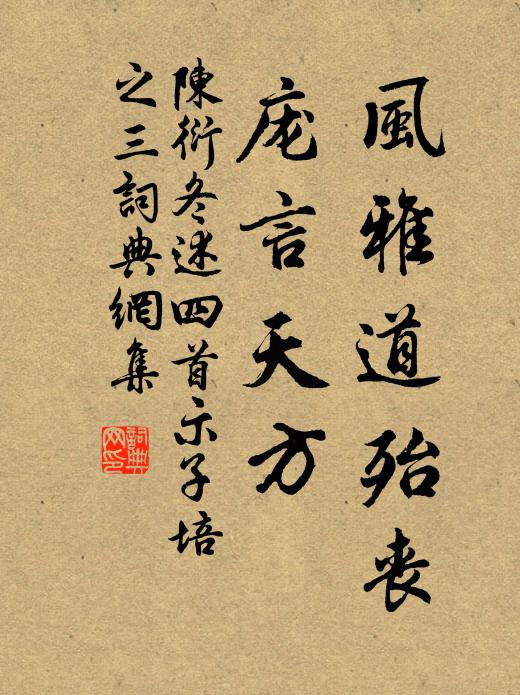 風雅道殆喪
庬言天方
陳衍冬述四首示子培
之三詞典網集
詞典網印